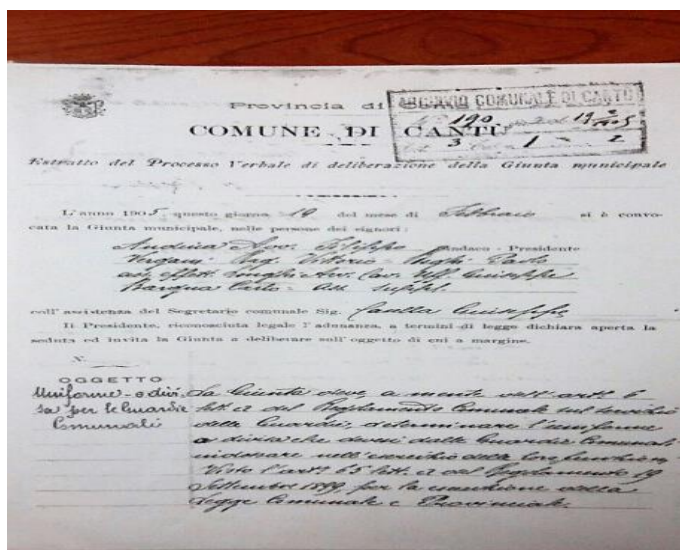 Provincia di
ARCHIVIO COMUNALE DI CANTÙ
N° 190 19 1905
3 1 2
COMUNE DI CANTÙ
Estratto del Processo Verbale di deliberazione della Giunta municipale
L'anno 1905 questo giorno 19 del mese di Febbraio si è convo-
cata la Giunta municipale, nelle persone dei signori:
Avv. Filippo Sindaco - Presidente
Vergani Ing. Vittorio - Paolo
ass. effett. Avv. Cav. Uff. Giuseppe
Carlo - ass. suppl.
coll' assistenza del Segretario comunale Sig. Giuseppe
Il Presidente, riconosciuta legale l'adunanza, a termini di legge dichiara aperta la
seduta ed invita la Giunta a deliberare sull'oggetto di cui a margine.
N.
OGGETTO
Uniforme o divi-
sa per le Guardie
Comunali
La Giunta deve a mente dell'art. 6
lett. a del Regolamento Comunale sul servizio
delle Guardie, determinare l'uniforme
o divisa che devono dalle Guardie Comunali
indossare nell'esercizio della loro
Visto l'art. 65 lett. a del Regolamento 19
Settembre 1899, per la esecuzione della
Legge Comunale e Provinciale.